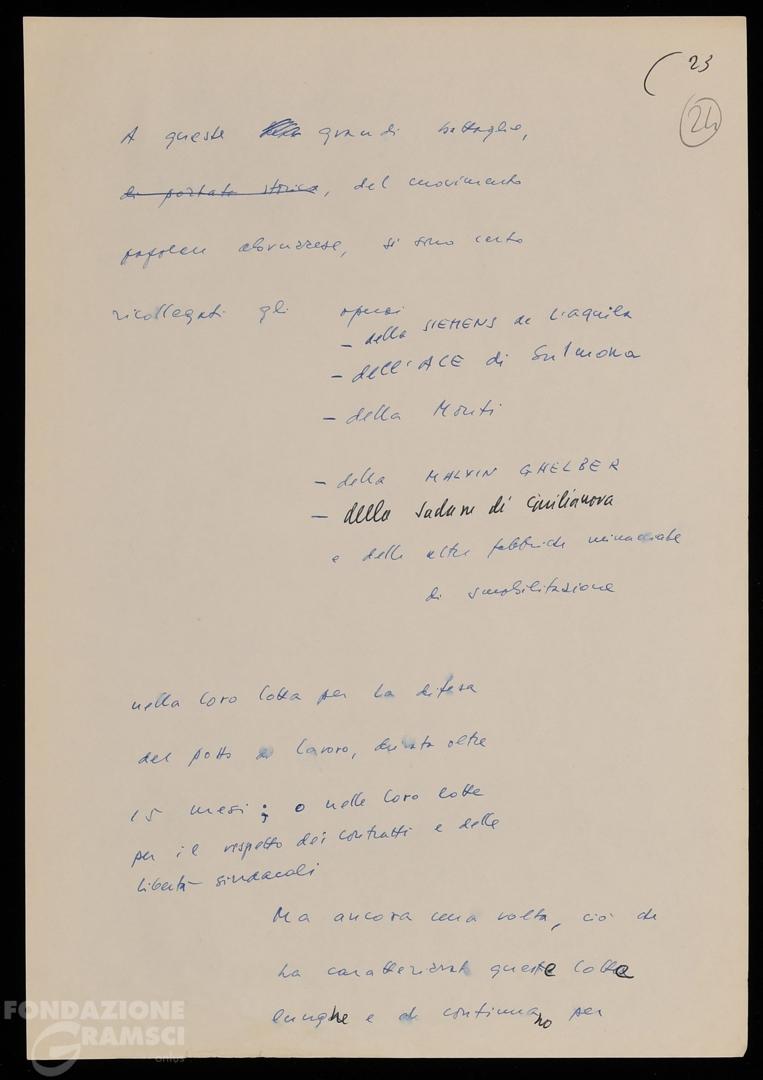 23
24
A queste grandi battaglie,
di portata storica, del movimento
popolare abruzzese, si sono certo
ricollegati gli operai
- della SIEMENS de L'Aquila
- dell'ACE di Sulmona
- della Monti
- della MALVIN GHELBER
- della di Civilianova
e delle altre fabbriche minacciate
di smobilitazione
nella loro lotta per la difesa
del posto di lavoro, durata oltre
15 mesi; o nelle loro lotte
per il rispetto dei contratti e delle
libertà sindacali
Ma ancora una volta, ciò che
ha caratterizzato queste lotte
lunghe e che continuano per
FONDAZIONE
GRAMSCI
onlus